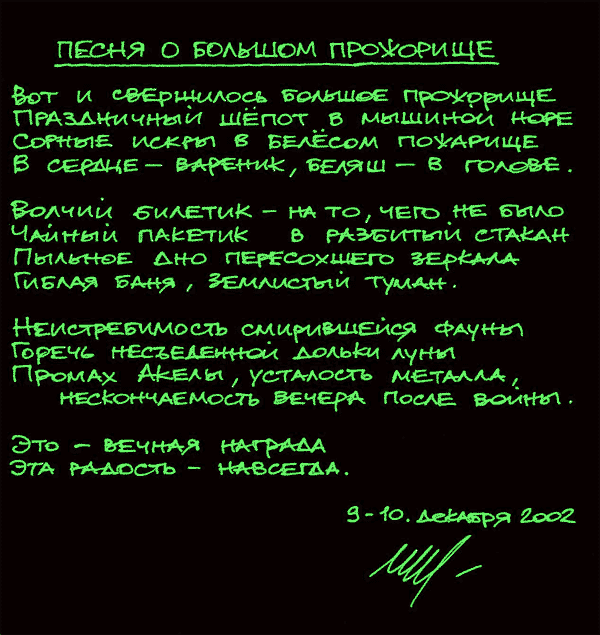 ПЕСНЯ О БОЛЬШОМ ПРОЖОРИЩЕ
Вот и свершилось большое прожорище
Праздничный шёпот в мышиной норе
Сорные искры в белёсом пожарище
В сердце – вареник, беляш – в голове.
Волчий билетик – на то, чего не было
Чайный пакетик в разбитый стакан
Пыльное дно пересохшего зеркала
Гиблая баня, землистый туман.
Неистребимость смирившейся фауны
Горечь несъеденной дольки луны
Промах Акелы, усталость металла,
нескончаемость вечера после войны.
Это – вечная награда
Эта радость – навсегда.
9-10. декабря 2002